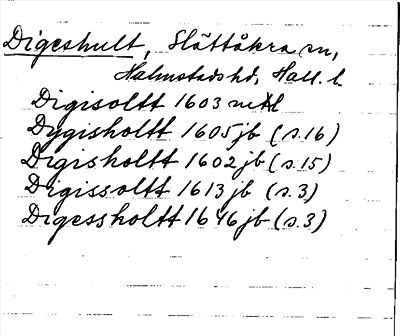 Digeshult, Slättåkra sn,
Halmstads hd, Hall. l.
Digisoltt 1603 mtl
Dygisholtt 1605 jb (s.16)
Digisholtt 1602 jb (s.15)
Digissoltt 1613 jb (s.3)
Digessholtt 1646 jb (s.3)